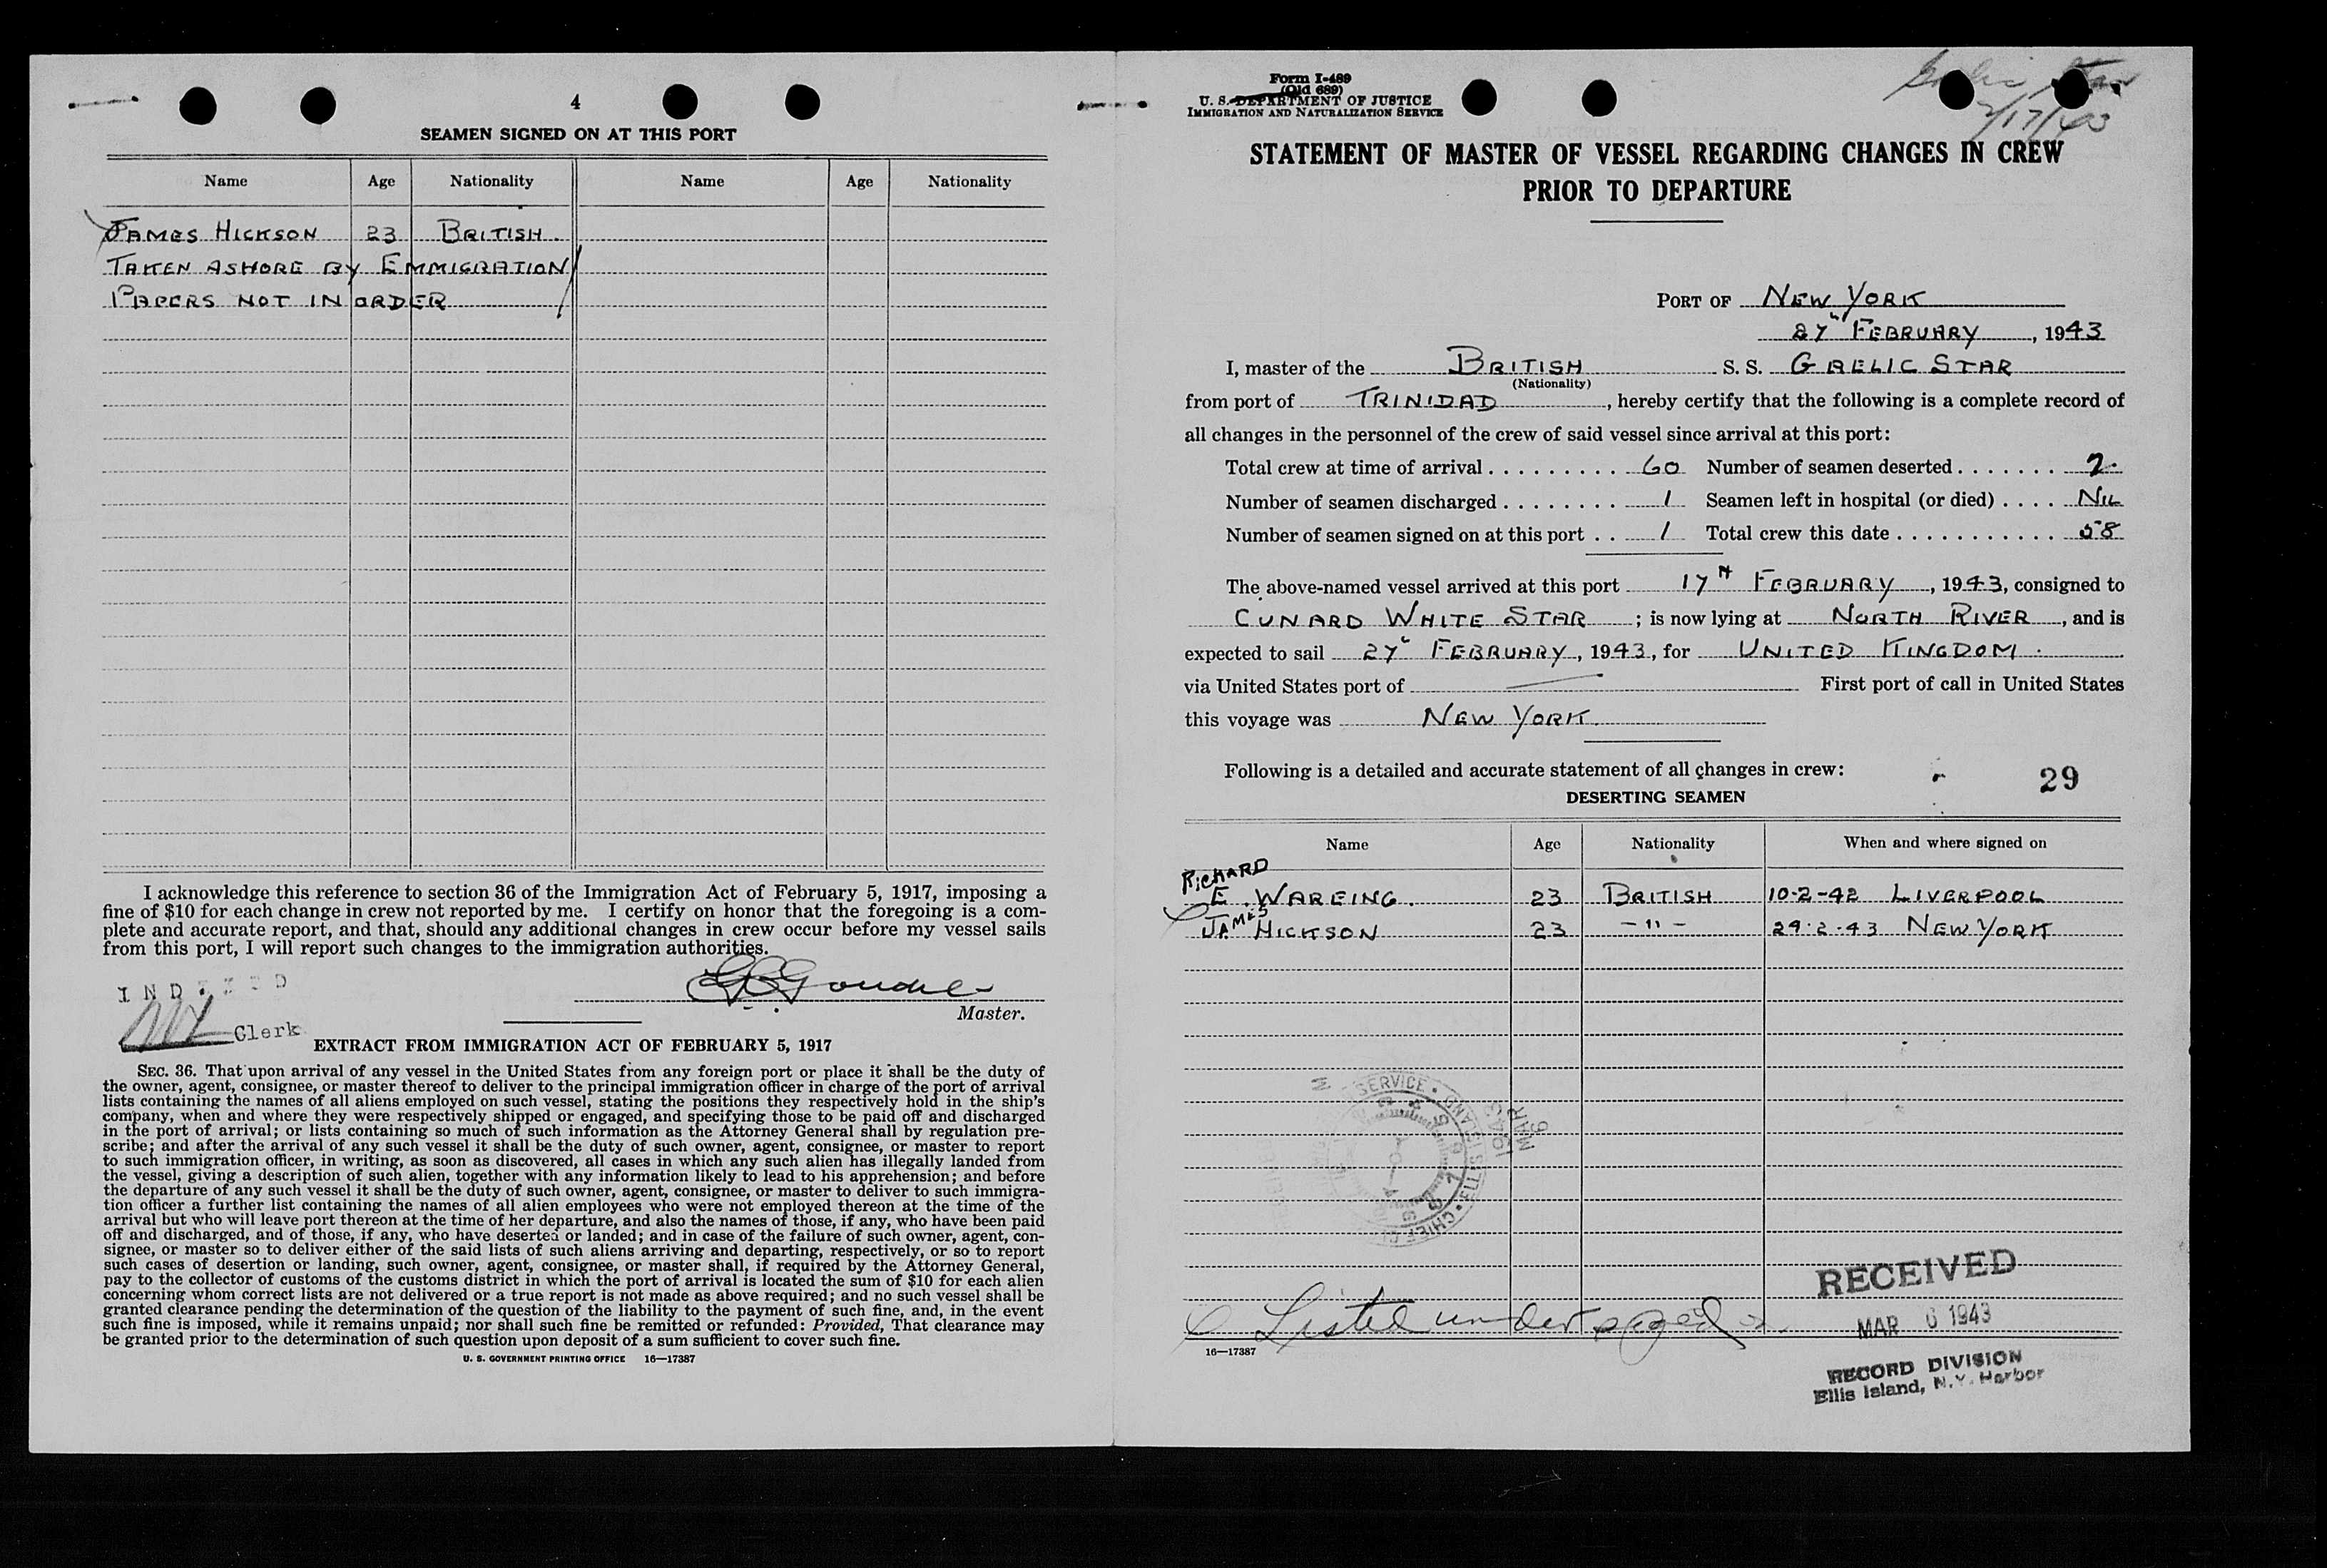 4
SEAMEN SIGNED ON AT THIS PORT
Name Age Nationality Name Age Nationality
JAMES HICKSON 23 BRITISH
TAKEN ASHORE BY EMMIGRATION
PAPERS NOT IN ORDER
I acknowledge this reference to section 36 of the Immigration Act of February 5, 1917, imposing a
fine of $10 for each change in crew not reported by me. I certify on honor that the foregoing is a com-
plete and accurate report, and that, should any additional changes in crew occur before my vessel sails
from this port, I will report such changes to the immigration authorities.
INDEXED
Clerk
Master.
EXTRACT FROM IMMIGRATION ACT OF FEBRUARY 5, 1917
SEC. 36. That upon arrival of any vessel in the United States from any foreign port or place it shall be the duty of
the owner, agent, consignee, or master thereof to deliver to the principal immigration officer in charge of the port of arrival
lists containing the names of all aliens employed on such vessel, stating the positions they respectively hold in the ship's
company, when and where they were respectively shipped or engaged, and specifying those to be paid off and discharged
in the port of arrival; or lists containing so much of such information as the Attorney General shall by regulation pre-
scribe; and after the arrival of any such vessel it shall be the duty of such owner, agent, consignee, or master to report
to such immigration officer, in writing, as soon as discovered, all cases in which any such alien has illegally landed from
the vessel, giving a description of such alien, together with any information likely to lead to his apprehension; and before
the departure of any such vessel it shall be the duty of such owner, agent, consignee, or master to deliver to such immigra-
tion officer a further list containing the names of all alien employees who were not employed thereon at the time of the
arrival but who will leave port thereon at the time of her departure, and also the names of those, if any, who have been paid
off and discharged, and of those, if any, who have deserted or landed; and in case of the failure of such owner, agent, con-
signee, or master so to deliver either of the said lists of such aliens arriving and departing, respectively, or so to report
such cases of desertion or landing, such owner, agent, consignee, or master shall, if required by the Attorney General,
pay to the collector of customs of the customs district in which the port of arrival is located the sum of $10 for each alien
concerning whom correct lists are not delivered or a true report is not made as above required; and no such vessel shall be
granted clearance pending the determination of the question of the liability to the payment of such fine, and, in the event
such fine is imposed, while it remains unpaid; nor shall such fine be remitted or refunded: Provided, That clearance may
be granted prior to the determination of such question upon deposit of a sum sufficient to cover such fine.
U. S. GOVERNMENT PRINTING OFFICE 16—17387
Form I-489
(Old 689)
U. S. DEPARTMENT OF JUSTICE
IMMIGRATION AND NATURALIZATION SERVICE
2/17/43
STATEMENT OF MASTER OF VESSEL REGARDING CHANGES IN CREW
PRIOR TO DEPARTURE
PORT OF NEW YORK
27" FEBRUARY, 1943
I, master of the BRITISH S. S. GAELIC STAR
(Nationality)
from port of TRINIDAD, hereby certify that the following is a complete record of
all changes in the personnel of the crew of said vessel since arrival at this port:
Total crew at time of arrival 60 Number of seamen deserted 2.
Number of seamen discharged 1 Seamen left in hospital (or died) NIL
Number of seamen signed on at this port 1 Total crew this date 58
The above-named vessel arrived at this port 17TH FEBRUARY, 1943, consigned to
CUNARD WHITE STAR; is now lying at NORTH RIVER, and is
expected to sail 27" FEBRUARY, 1943, for UNITED KINGDOM.
via United States port of — First port of call in United States
this voyage was NEW YORK.
Following is a detailed and accurate statement of all changes in crew:
29
DESERTING SEAMEN
Name Age Nationality When and where signed on
RICHARD
E. WAREING. 23 BRITISH 10-2-42 LIVERPOOL
JAMES HICKSON 23 -"- 24.2.43 NEW YORK
SERVICE • ELLIS ISLAND • CHIEF
1943 MAR 6
RECEIVED
Listed under
MAR 6 1943
16—17387
RECORD DIVISION
Ellis Island, N.Y. Harbor